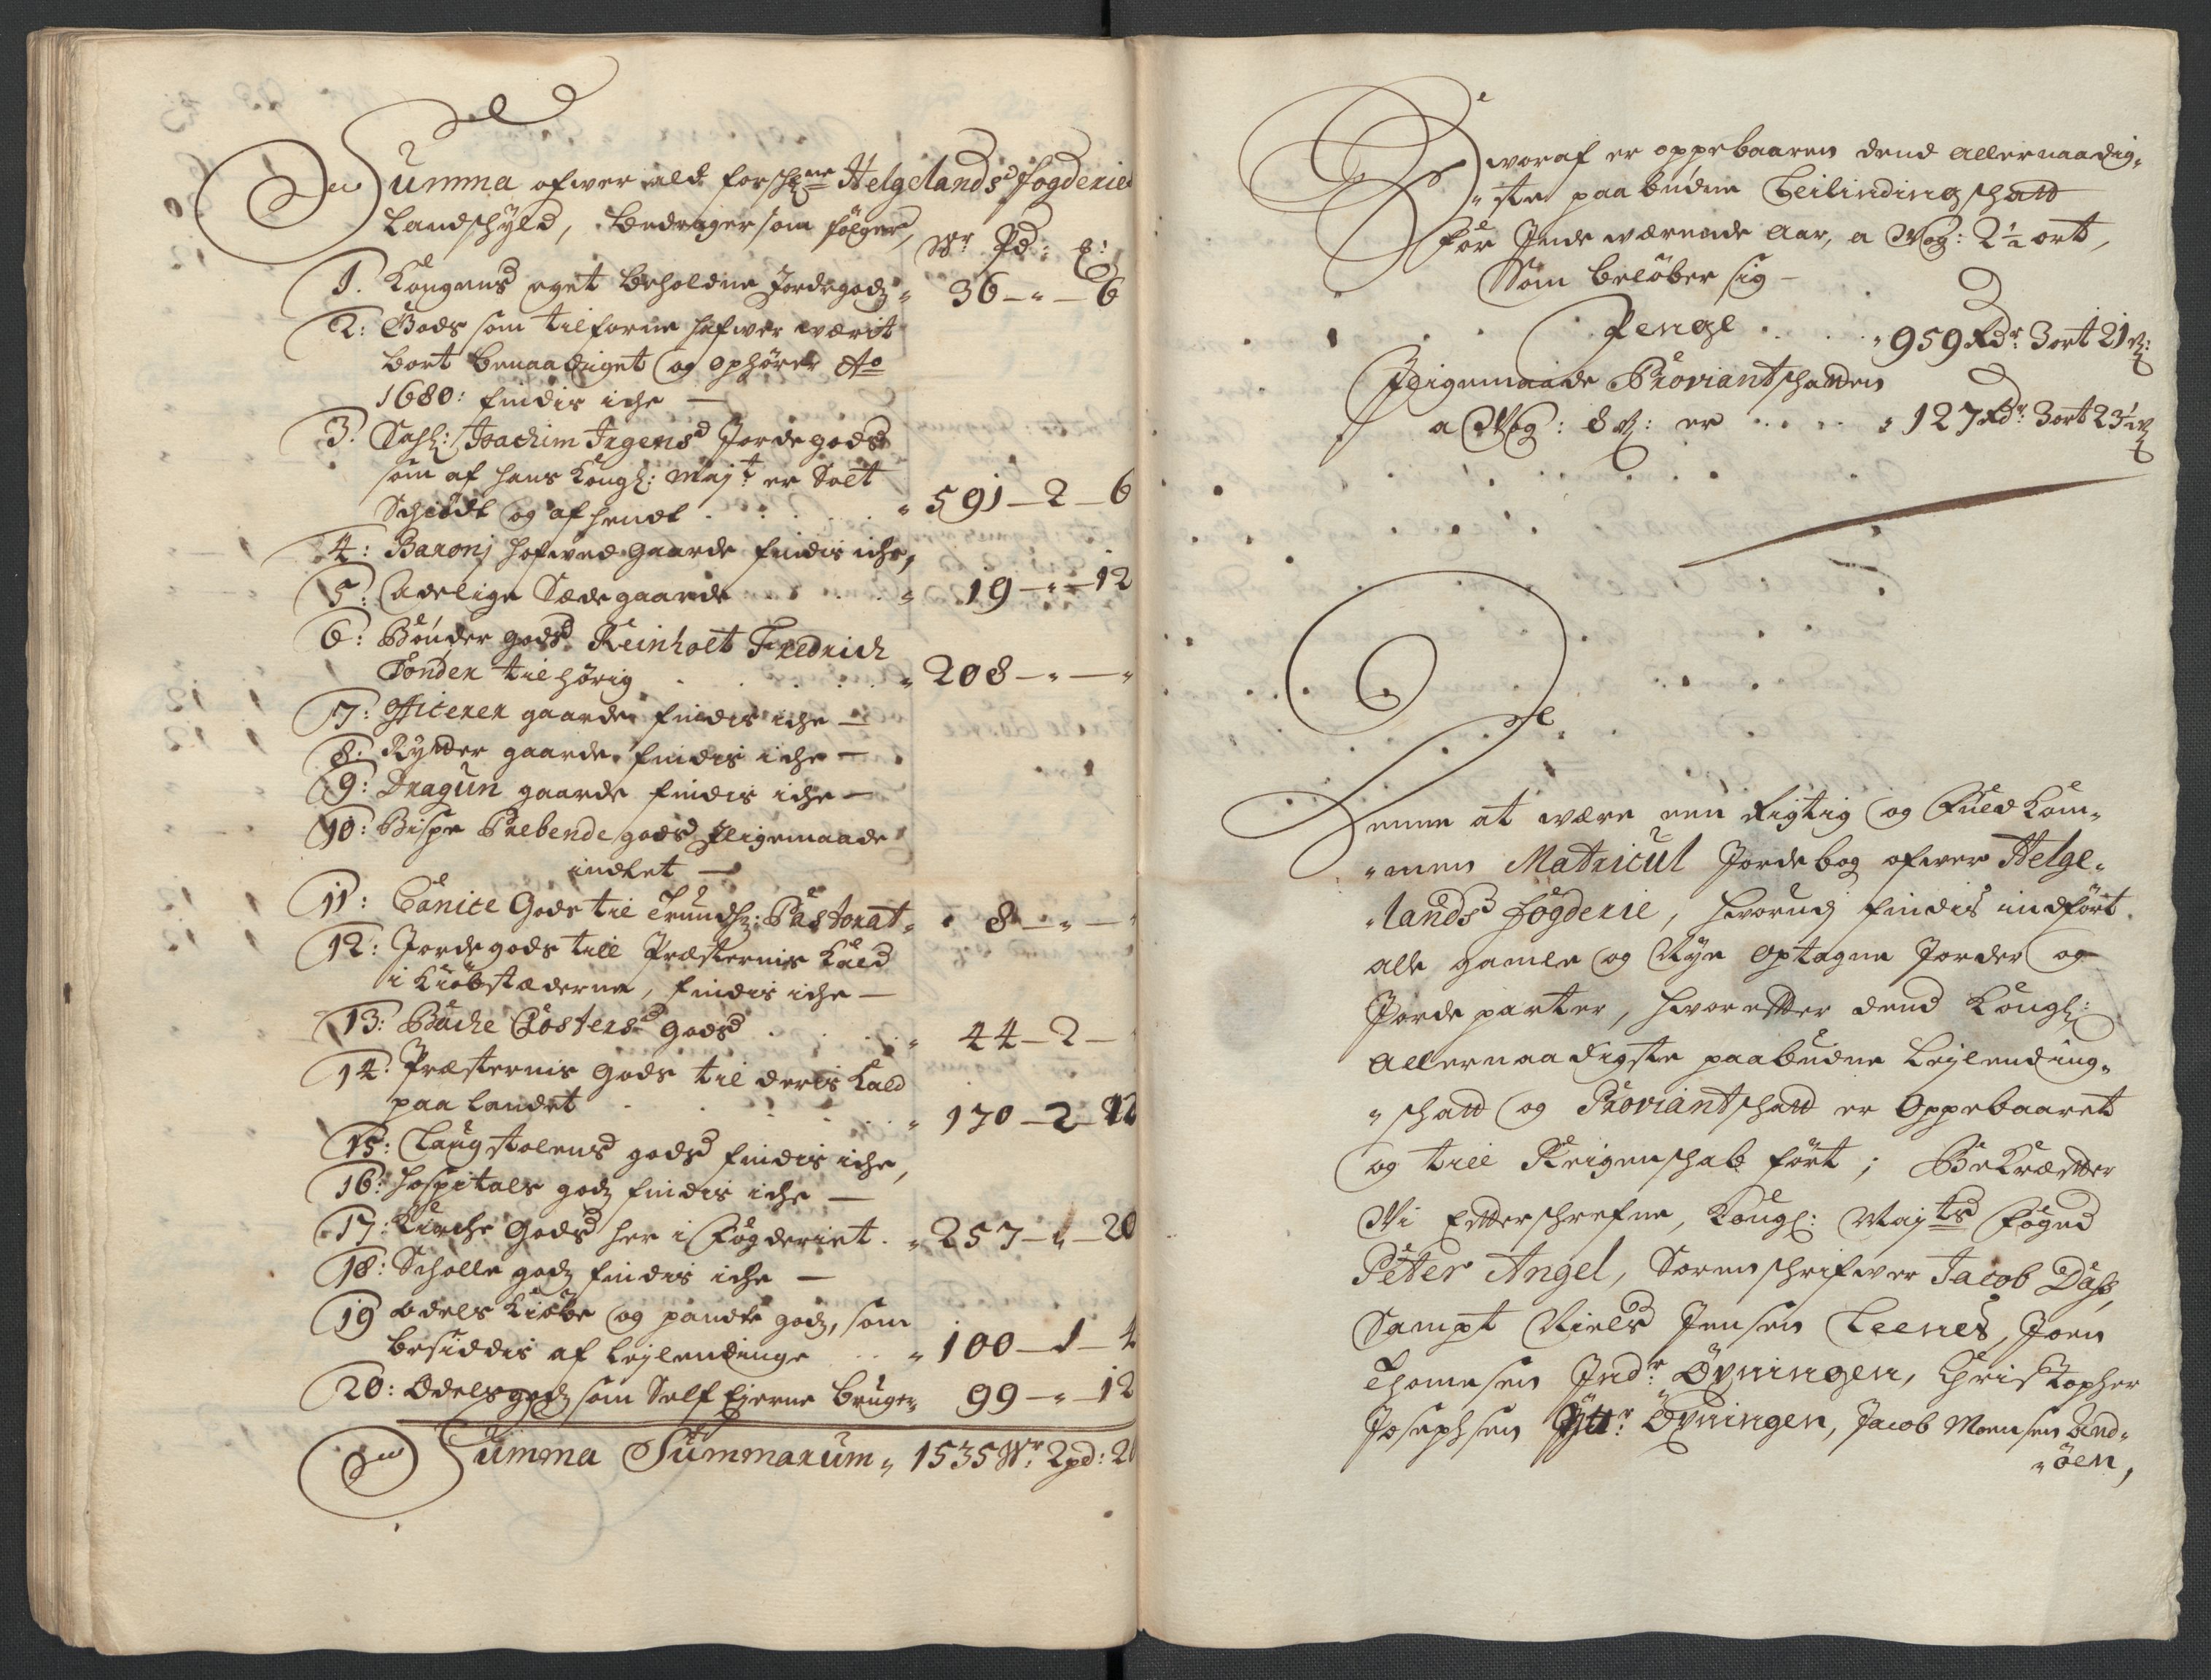 Summa ofwer ald forschr:ne Helgelands Fogderies
Landschyld, bedrager som følger,
Wr Pd: ℔:
1. Kongens eget beholdne Jordegodz „ 36 – „ – 6
2: Gods som tilforne hafwer wærit
bort benaadiget og ophører Ao
1680: findis iche –
3. Sahl: Joachim Irgens Jordegods
som af hans Kongl: Majt: er Solt
Schiødt og afhendt . . . „ 591 – 2 – 6
4: Baronj hofwed gaarde findis iche,
5: Adelige Sædegaarde . . . „ 19 – „ – 12
6: Bønder gods Reinholt Fredrich
Tønder tilhørig . . . . „ 208 – „ – „
7: Officerer gaarde findis iche –
8: Rytter gaarde findis iche –
9: Dragun gaarde findis iche –
10: Bispe Prebende gods Iligemaade
indtet –
11: Canice Gods til Trundhs: Pastorat „ 8 – „ –
12: Jordegods till Præsternis Kald
i Kiøbstæderne, findis iche –
13: Bache Closters gods . . . „ 44 – 2 –
14: Præsternis Gods til deris Kald
paa Landet . . . . „ 170 – 2 – 12
15: Laugstolens gods findis iche,
16: Hospitals godz findis iche –
17: Kirche Gods her i Fogderiet . „ 257 – „ – 20
18: Scholle godz findis iche –
19 Odels Kiøbe og pandte godz, som
besiddis af Lejlendinge . . „ 100 – 1 – 4
20: Odelsgodz som Self Ejerne bruger „ 99 – „ – 12
Summa Summarum „ 1535 Wr: 2 pd: 20
Hworaf er oppebaaren dend allernaadig„
„ste paabudne Leilindingschatt
for Indewærende Aar, a Wog: 2½ ort,
Som beløber sig –
Penge . . . . „ 959 Rdr: 3 ort 21 ß:
Iligemaade Proviantschatten
a Wog: 8 ß: er . . . . „ 127 Rdr: 3 ort 23½ ß
Denne at være een Rigtig og Fuldkom„
„men Matricul Jordebog ofwer Helge„
„lands Fogderie, hworudj findis indført
alle gamle og Nye optagne Jorder og
Jorde parter, hworefter dend Kongl:
allernaadigste paabudne Lejlending„
„schatt og Proviantschatt er Oppebaaret
og till Reigenschab ført; Bekræfter
Wi Efterschrefne, Kongl: Majts Foged
Peter Angel, Sorenschrifwer Jacob Dass,
Sampt Niels Jensen Leenes, Joen
Thomesen Indr: Øvningen, Christopher
Josephsen Yttr: Øvningen, Jacob Monsen And„
„øen,